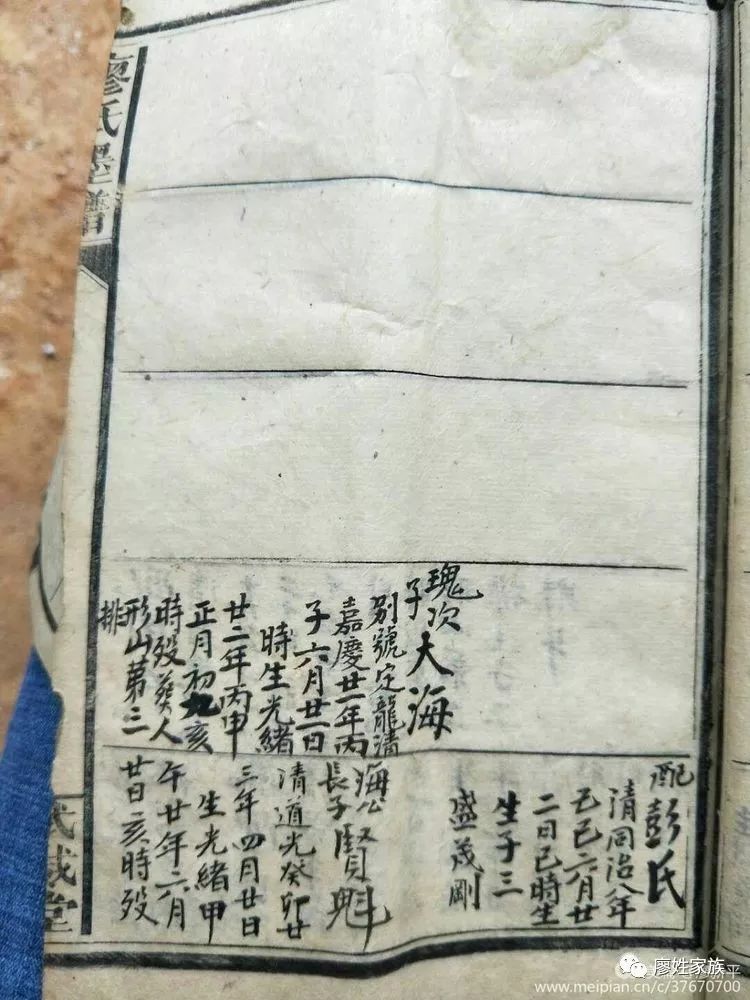 瑰次子大海
别號定龍清
嘉慶廿一年丙
子六月廿一日
時生光緒
廿二年丙申
正月初九亥
時殁葬人
形山第三
排
配彭氏
清同治八年
己巳六月廿
二日巳時生
生子三
盛茂剛
海公長子賢魁
清道光癸卯廿
三年四月廿日
生光緒甲
午廿年六月
廿日亥時殁
廖氏墨譜
武威堂
廖姓家族
www.meipian.cn/c/37670700